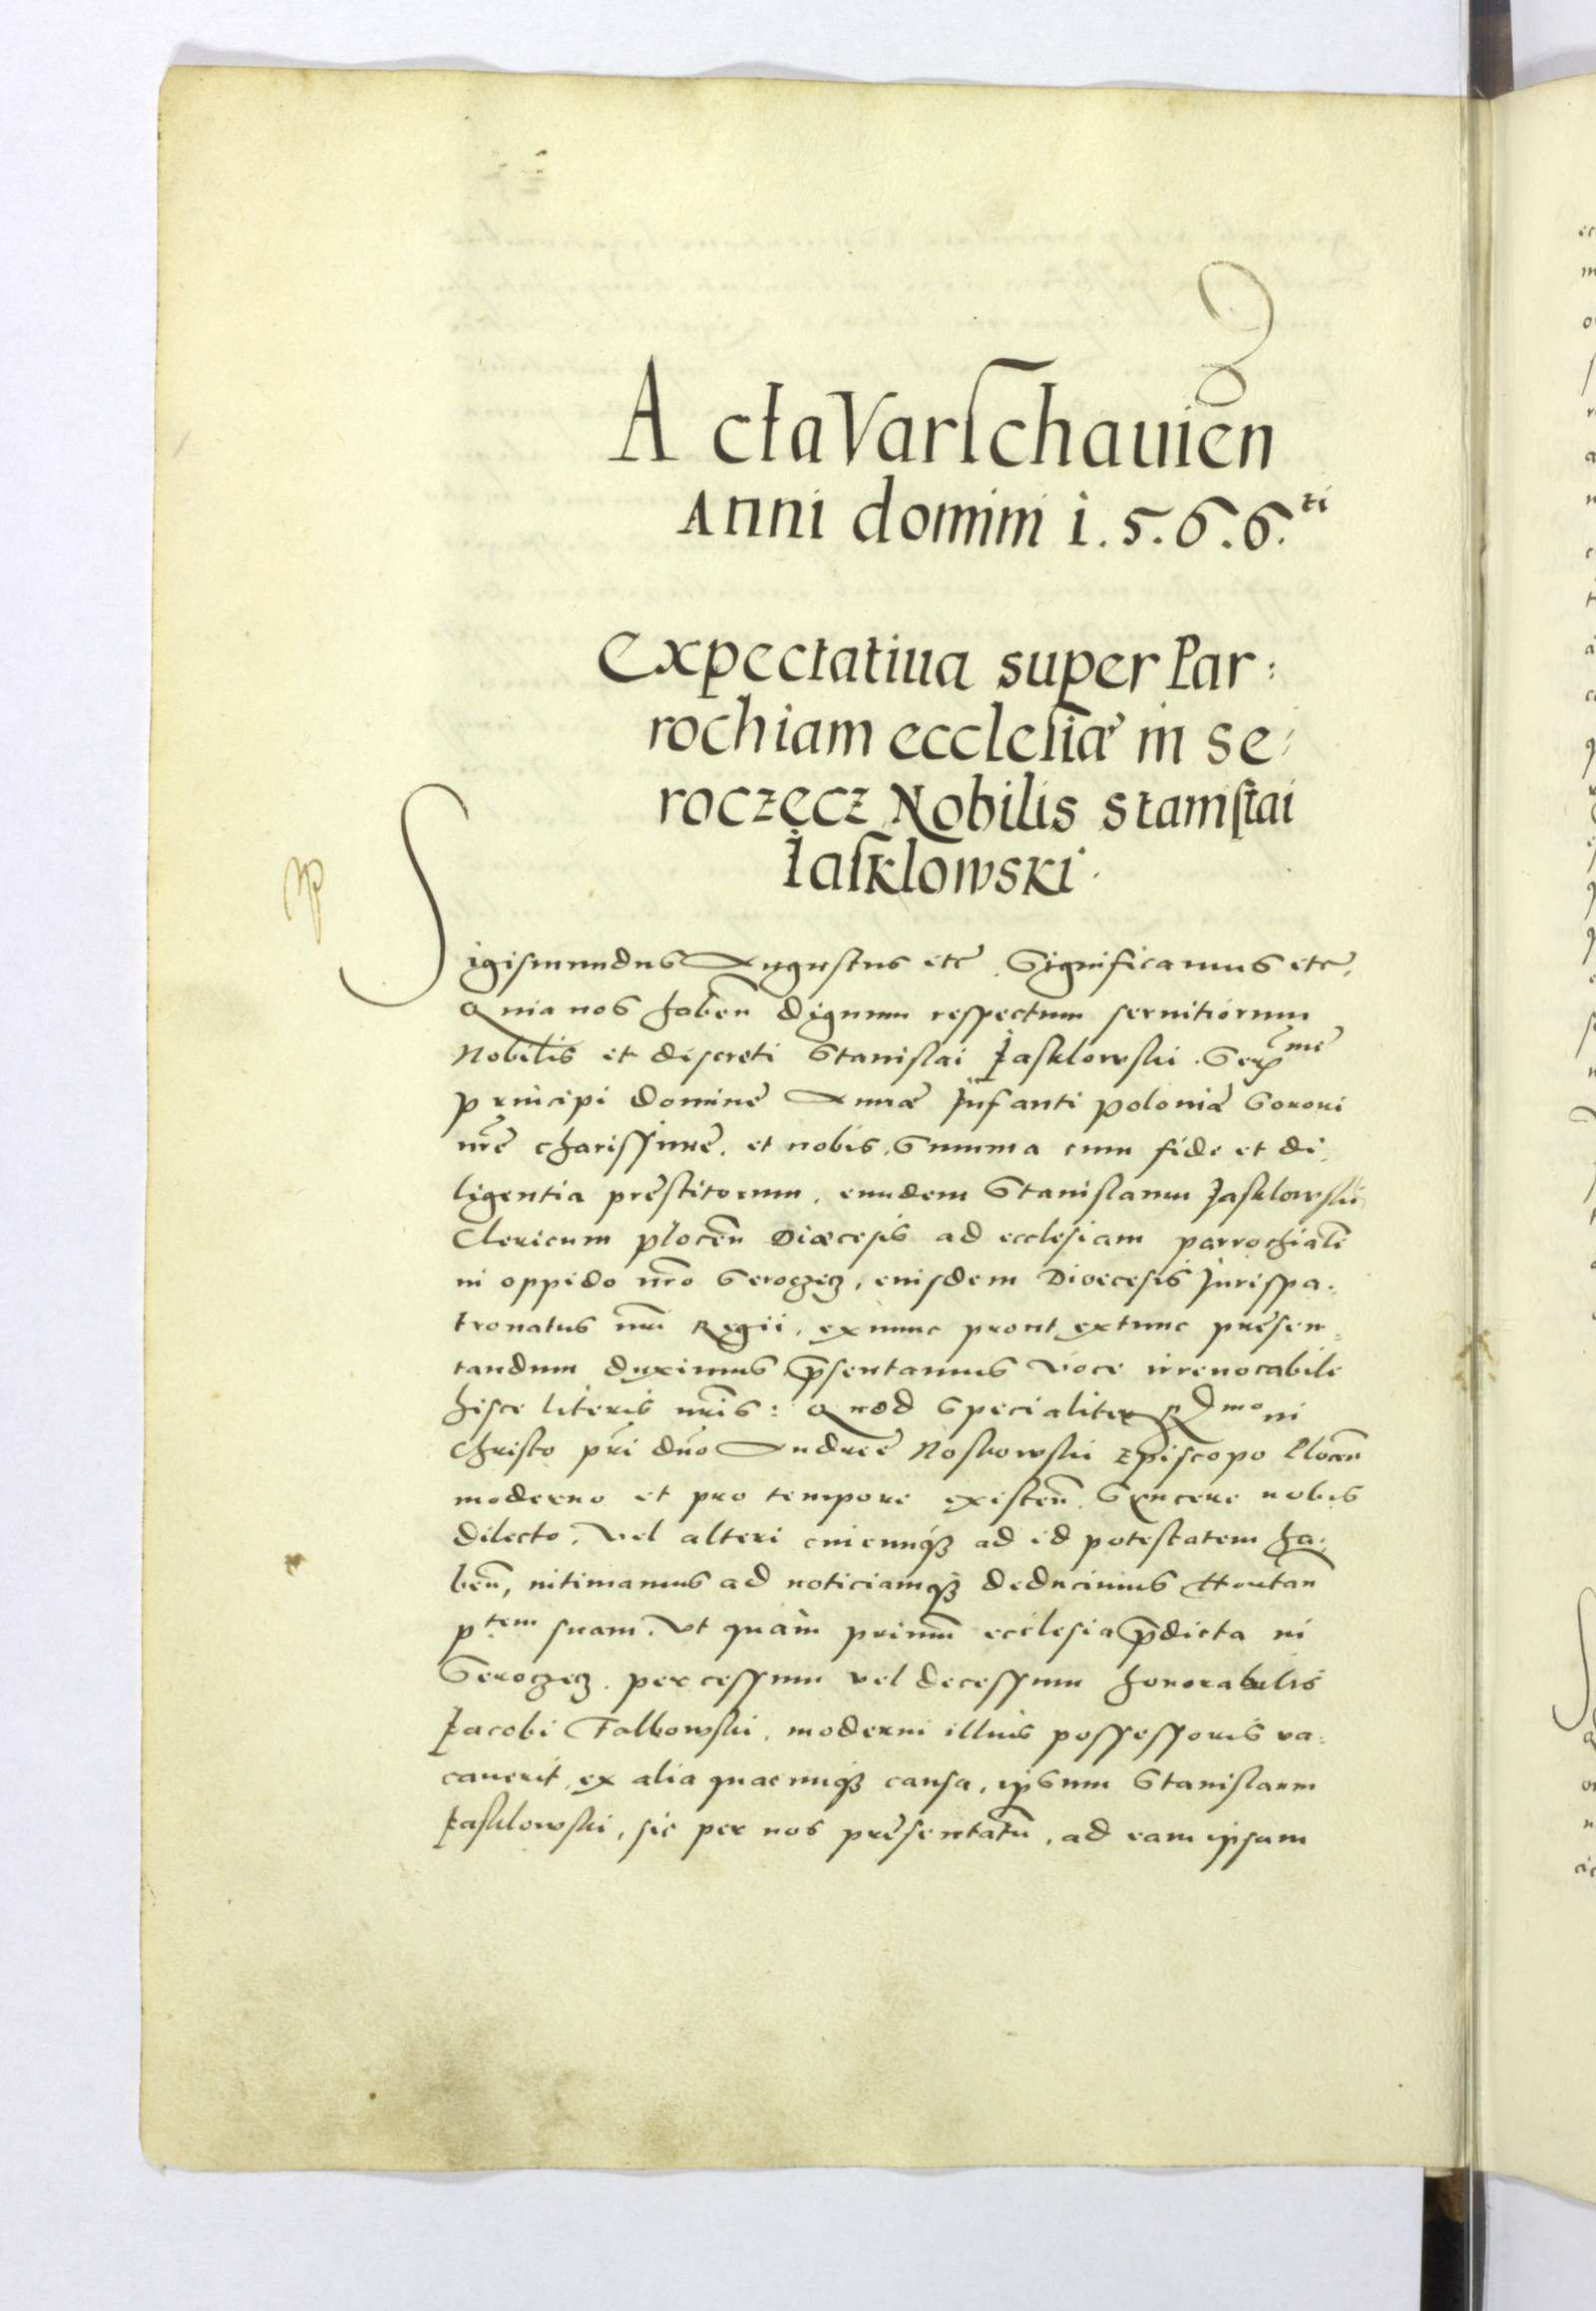 Acta Varschauien̄
Anni domini 1.5.6.6.ti
Expectatiua super Par:
rochiam ecclesiæ in Se:
roczecz Nobilis Stanislai
Iasklowski.
Sigismundus Augustus etc̄. Significamus etc̄.
Quia nos haben̄ dignum respectum seruitiorum
Nobilis et discreti Stanislai Jasklowski. Serme
principi dominę Annæ Infanti Poloniæ Sorori
nr̄ę charissimę. et nobis. Summa cum fide et di
ligentia pręstitorum. eundem Stanislaum Jasklowski
Clericum plocen̄ Diæcesis ad ecclesiam parrochialē
in oppido nr̄o Seroczecz, eiusdem Dioecesis Jurispa
tronatus nr̄i Regii. ex nunc prout extunc pręsen
tandum duximus p̄sentamus voce irreuocabile
hisce literis nr̄is: Quod specialiter Rdmo in
Christo pr̄i dn̄o Andreę Noskowski Episcopo Plocen̄
moderno et pro tempore existen̄. Syncere nobis
dilecto. Vel alteri cuicunq3 ad id potestatem ha
ben̄, intimamus ad noticiamq3 deducimus Hortan̄
ptem suam. Vt quam primum ecclesia p̄dicta in
Seroczecz. per cessum vel decessum honorabilis
Jacobi Falkowski. moderni illius possessoris va
cauerit, ex alia quacunq3 causa, ipsum Stanislaum
Jasklowski, sic per nos pręsentatū, ad eam ipsam